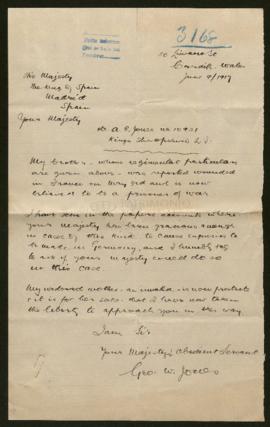 3168
Cardiff. Wales
June 9/1917
His Majesty
The King of Spain
Madrid
Spain
Your Majesty
A. E. Jones No
Kings Shropshire L.I.
My brother - whose regimental particulars
are given above - was reported wounded
in France on May 3rd and is now
believed to be a prisoner of war.
I have seen in the papers accounts where
your Majesty has been gracious enough
in cases of this kind to cause enquiries to
be made in Germany, and I humbly beg
to ask if your majesty would do so
in this case.
My widowed mother - an invalid - is now prostrate
& it is for her sake that I have now taken
the liberty to approach you in this way.
I am Sir
Your Majesty's Obedient Servant
Geo. W. Jones